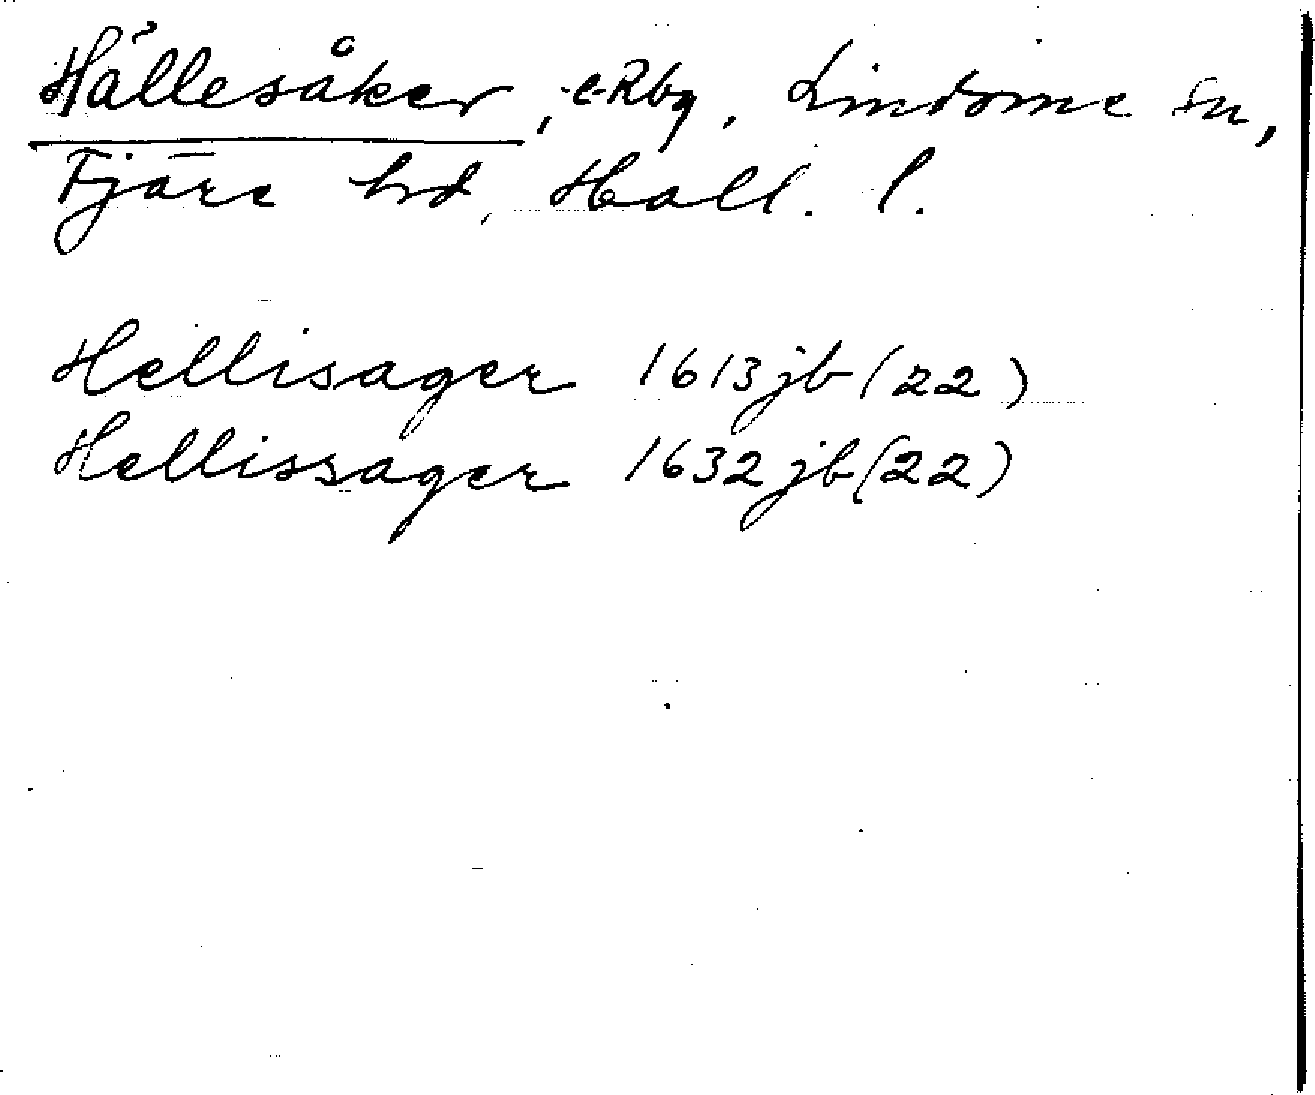 Hällesåker, e. Rby, Lindome sn,
Fjäre hd, Hall. l.
Hellisager 1613 jb (22)
Hellissager 1632 jb (22)